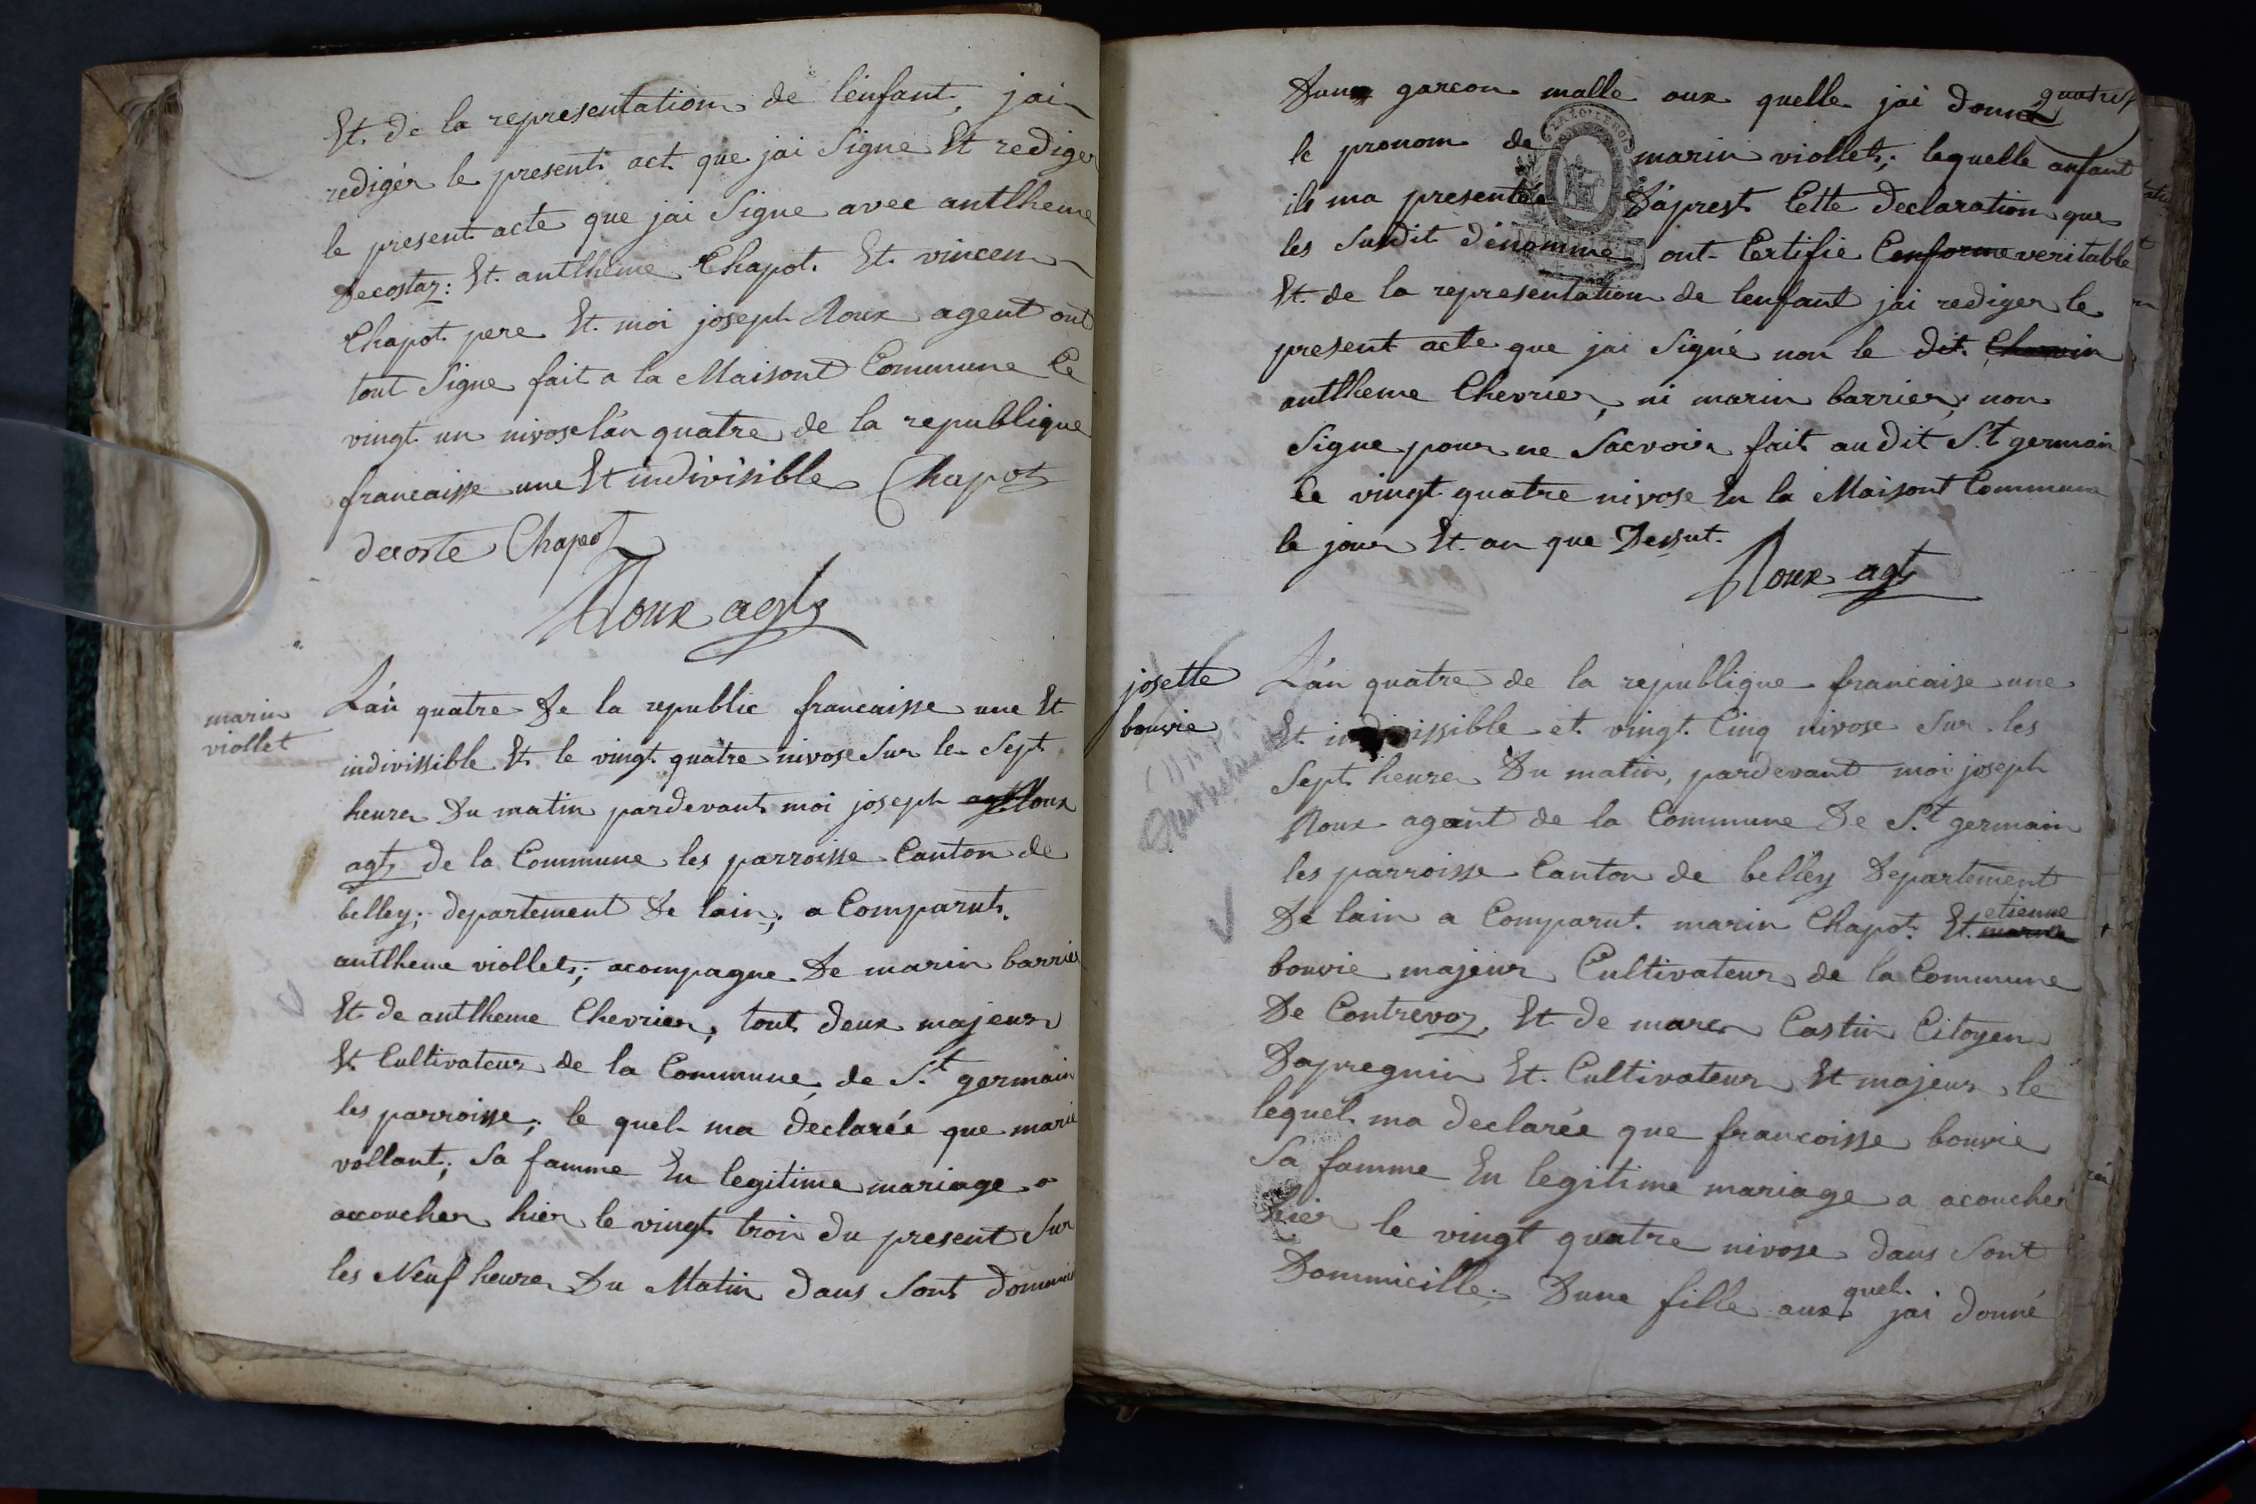 Et de la representation de l'enfant, jai
rediger le present act que jai Signe Et rediger
le present acte que jai Signe avec antlheme
Decostaz: Et antlheme Chapot. Et vincen
Chapot pere Et moi joseph Roux agent ont
tout Signe fait a la Maisont Commune Ce
vingt un nivose l'an quatre de la republique
francaisse une Et indivisible Chapot
decoste Chapot
Roux agt
marin
viollet
L'an quatre De la republic francaisse une Et
indivissible Et le vingt quatre nivose Sur le Sept
heure Du matin pardevant moi joseph agt Roux
agt de la Commune les parroisse Canton de
belley; departement De lain; a Comparut.
antlheme viollet; acompagne De marin barrier
Et de antlheme Chevrier, tout deux majeur
Et Cultivateur de la Commune de St germain
les parroisse; le quel ma declarée que marie
vollant; Sa famme En legitime mariage a
accoucher hier le vingt trois du present Sur
les Neuf heure Du Matin dans Sont dommici
Dune garcon malle aux quelle jai donné quatres
le pronom de marin viollet; lequelle anfant
ils ma presentée D'aprest Cette declaration que
les Susdit dénommé ont Certifie Conforme veritable
Et de la representation de lenfant jai rediger le
present acte que jai Signé non le dit
antlheme Chevrier, ni marin barrier, non
Signe pour ne Sacvoir fait au dit St germain
Ce vingt quatre nivose En la Maisont Commune
le jour Et an que Dessut.
Roux agt
josette
bouvie
L'an quatre de la republique francaise une
Et indivissible et vingt Cinq nivose Sur les
Sept heure Du matin, pardevant moi joseph
Roux agent de la Commune De St germain
les parroisse Canton de belley Departement
De lain a Comparut. marin Chapot. Et etienne
bouvie majeur Cultivateur de la Commune
De Contrevoz, Et de marc Castin Citoyen
Dapregnin Et Cultivateur Et majeur le
lequel ma declarée que francoisse bouvie
Sa famme En legitime mariage a acoucher
hier le vingt quatre nivose dans Sont
Dommicille; Dune fille aux quel jai donné